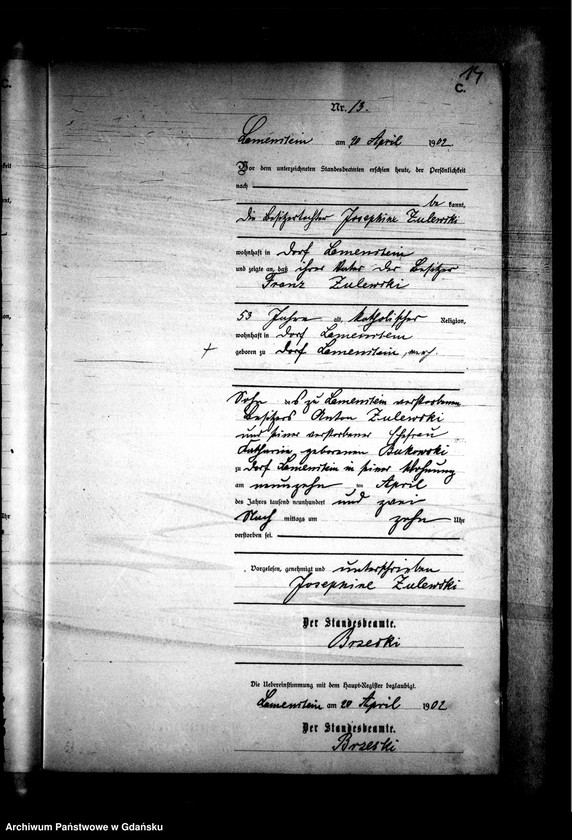 14
C.
Nr. 13.
Lemenstein am 20 April 1902
Vor dem unterzeichneten Standesbeamten erschien heute, der Persönlichkeit
nach
be kannt,
die Besitzertochter Josephine Zulewski
wohnhaft in Dorf Lemenstein
und zeigte an, daß ihrer Vater der Besitzer
Franz Zulewski
53 Jahre alt, katholischer Religion,
wohnhaft in Dorf Lemenstein
geboren zu Dorf Lemenstein,
Sohn des zu Lemenstein verstorbenen
Besitzers Anton Zulewski
und seiner verstorbener Ehefrau
Katharina geborenen Bukowski
zu Dorf Lemenstein in seiner Wohnung
am neunzehn ten April
des Jahres tausend neunhundert und zwei
Nach mittags um zehn Uhr
verstorben sei.
Vorgelesen, genehmigt und unterschrieben
Josephine Zulewski
Der Standesbeamte.
Brzeski
Die Uebereinstimmung mit dem Haupt-Register beglaubigt.
Lemenstein am 20 April 1902
Der Standesbeamte.
Brzeski
Archiwum Państwowe w Gdańsku